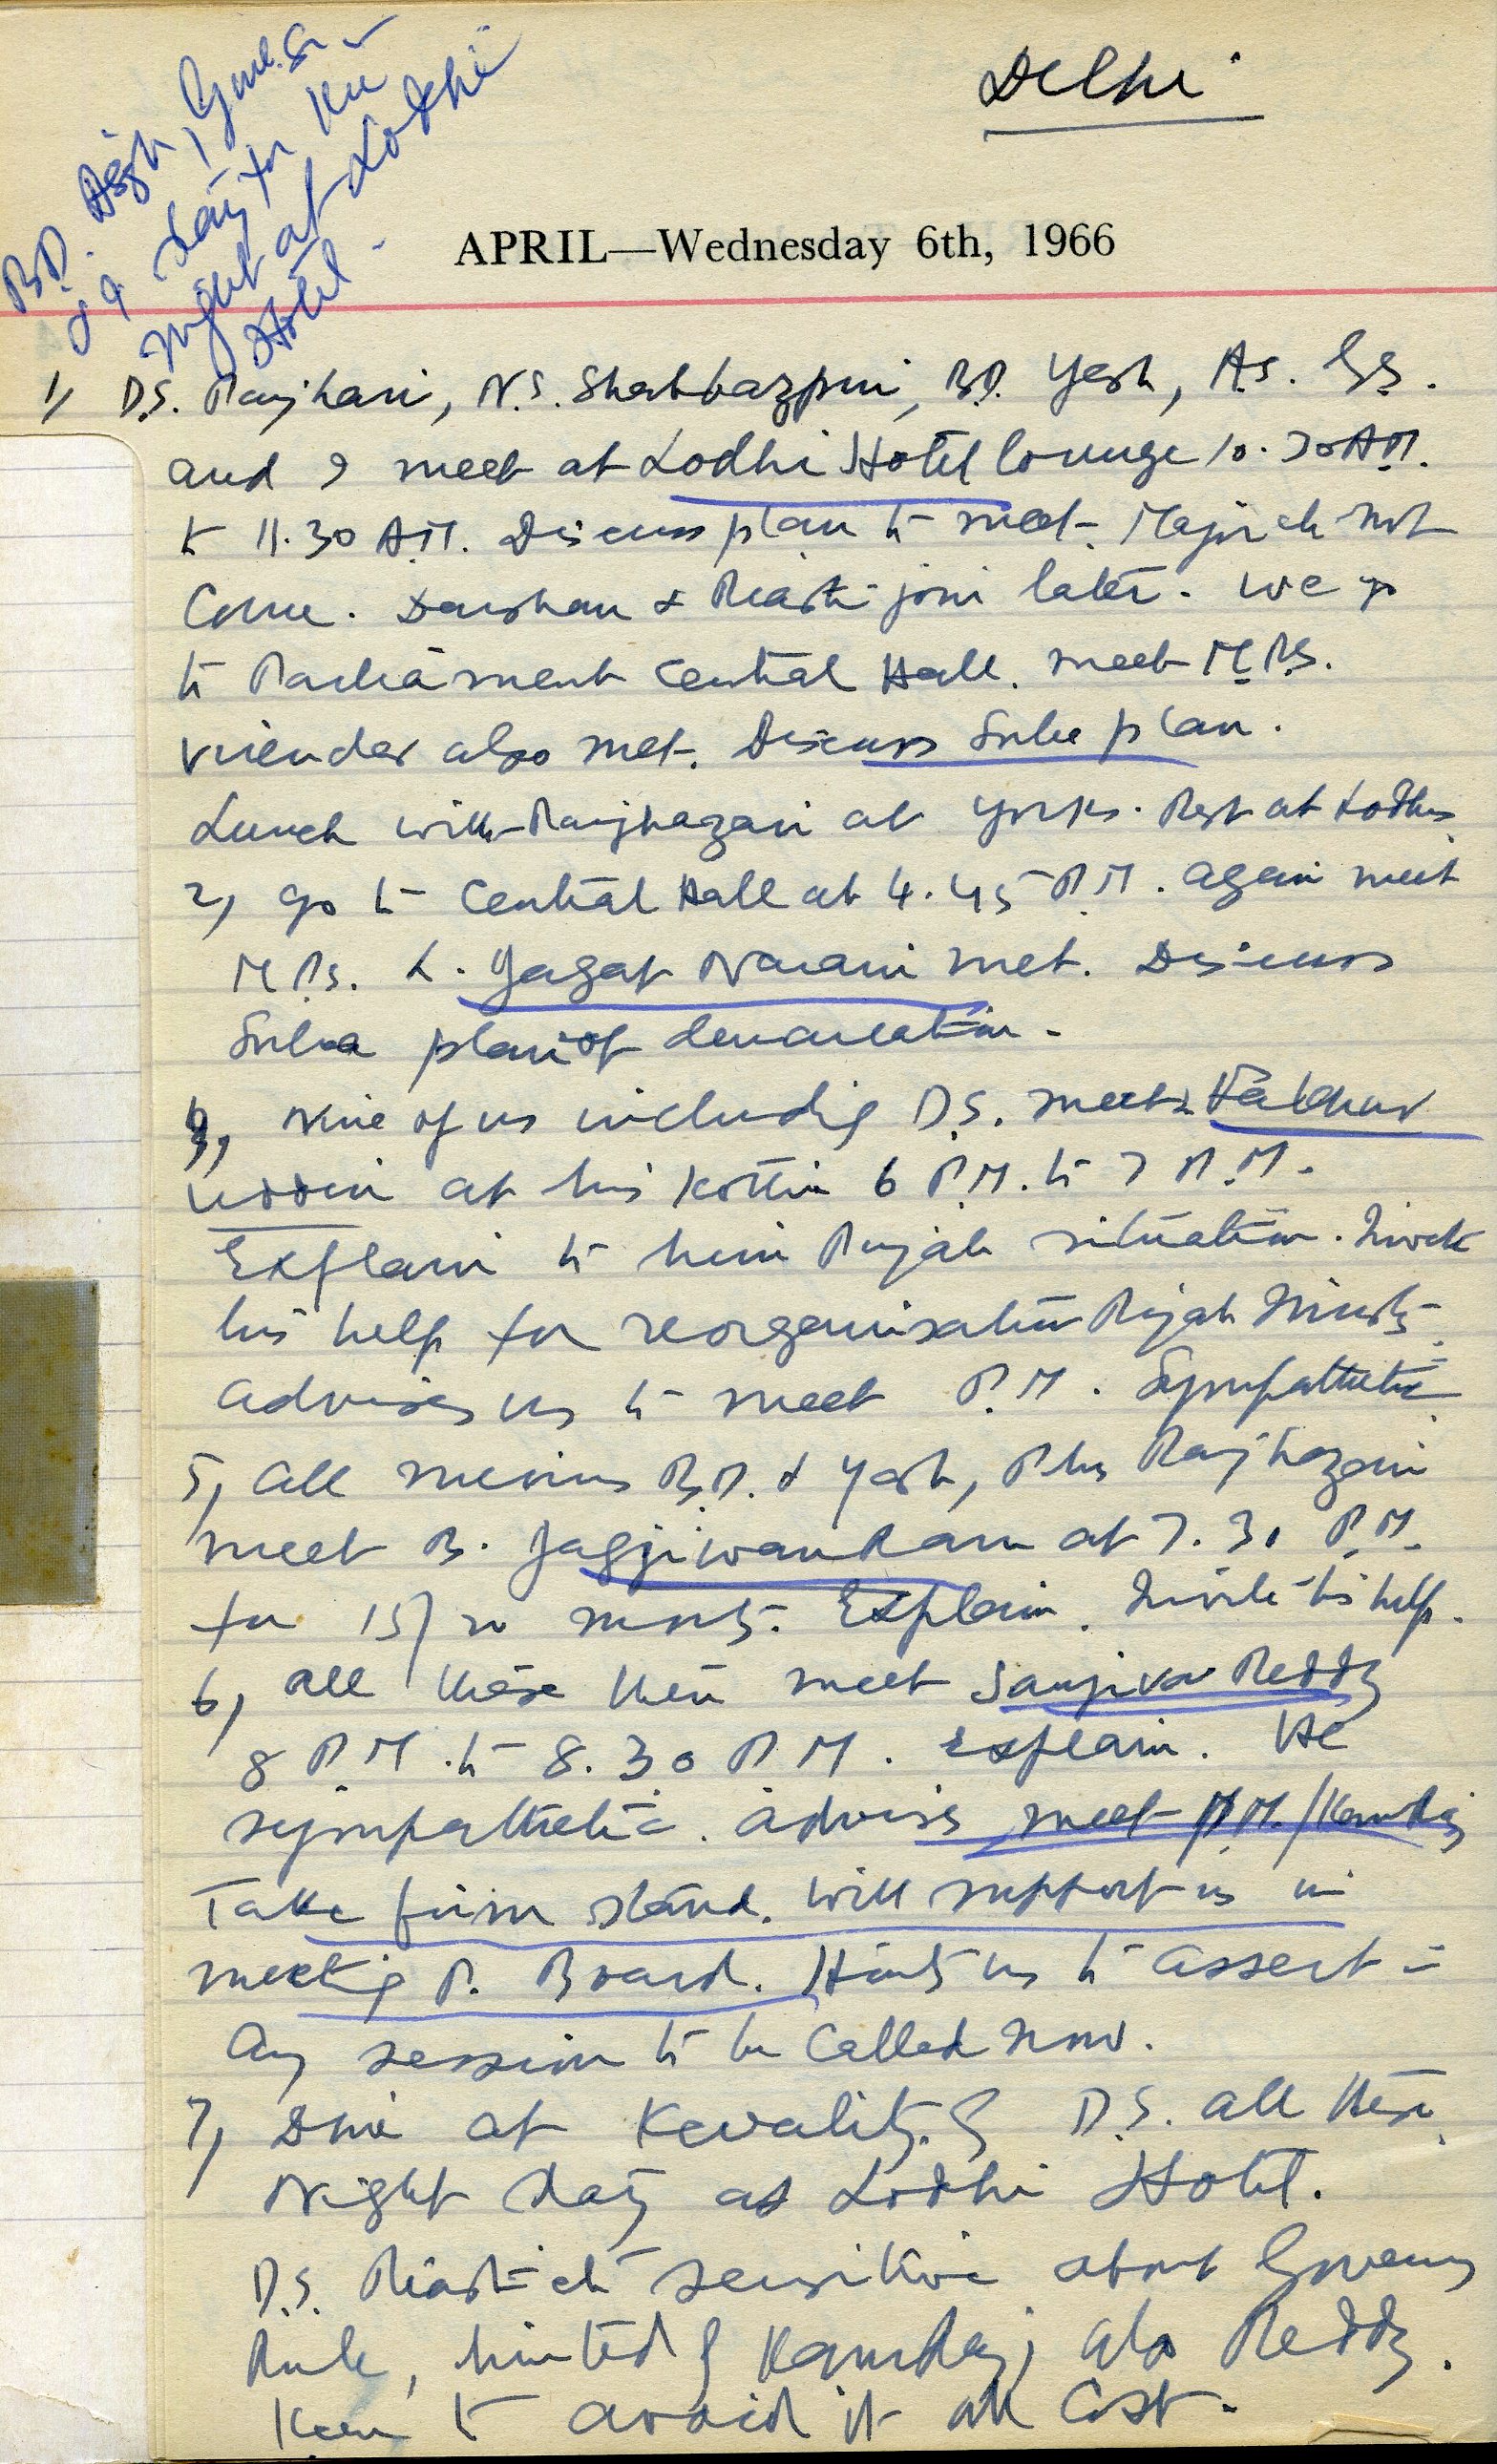 Delhi
B.D. Yash, Gurdial
& I stay for the
night at Lodhi
Hotel.
APRIL—Wednesday 6th, 1966
1, D.S. N.S. Shahbazpuri, B.D. Yash, A.S. G.S.
and I meet at Lodhi Hotel lounge 10.30 A.M.
to 11.30 A.M. Discuss plan to meet. Major etc not
come. Darshan & join later. We go
to Parliament Central Hall. meet M.Ps.
Virender also met. Discuss Suba plan.
Lunch with at Yorks. Rest at Lodhi
2, Go to Central Hall at 4.45 P.M. again meet
M.Ps. L. Jagat Narain met. Discuss
Suba plan of demarcation.
Nine of us including D.S. meet Fakhar
uddin at his Kothi 6 P.M. to 7 P.M.
Explain to him Punjab situation. Invoke
his help for reorganisation Punjab Ministry.
advises us to meet P.M. Sympathetic
5, All minus B.D. & Yash, Plus
meet B. Jagjiwan Ram at 7.30 P.M.
for 15/20 mnts. Explain. Invoke his help.
6, all these then meet Sanjiva Reddy
8 P.M. to 8.30 P.M. Explain. He
sympathetic. advises meet P.M./Kamraj
Take firm stand. will support us in
meeting P. Board. Hints us to assert in
any session to be called now.
7, Dine at Kwality. of D.S. all these.
Night stay at Lodhi Hotel.
D.S. etc sensitive about Governors
Rule, hinted by Kamraj, also Reddy.
Keen to avoid it all cost.